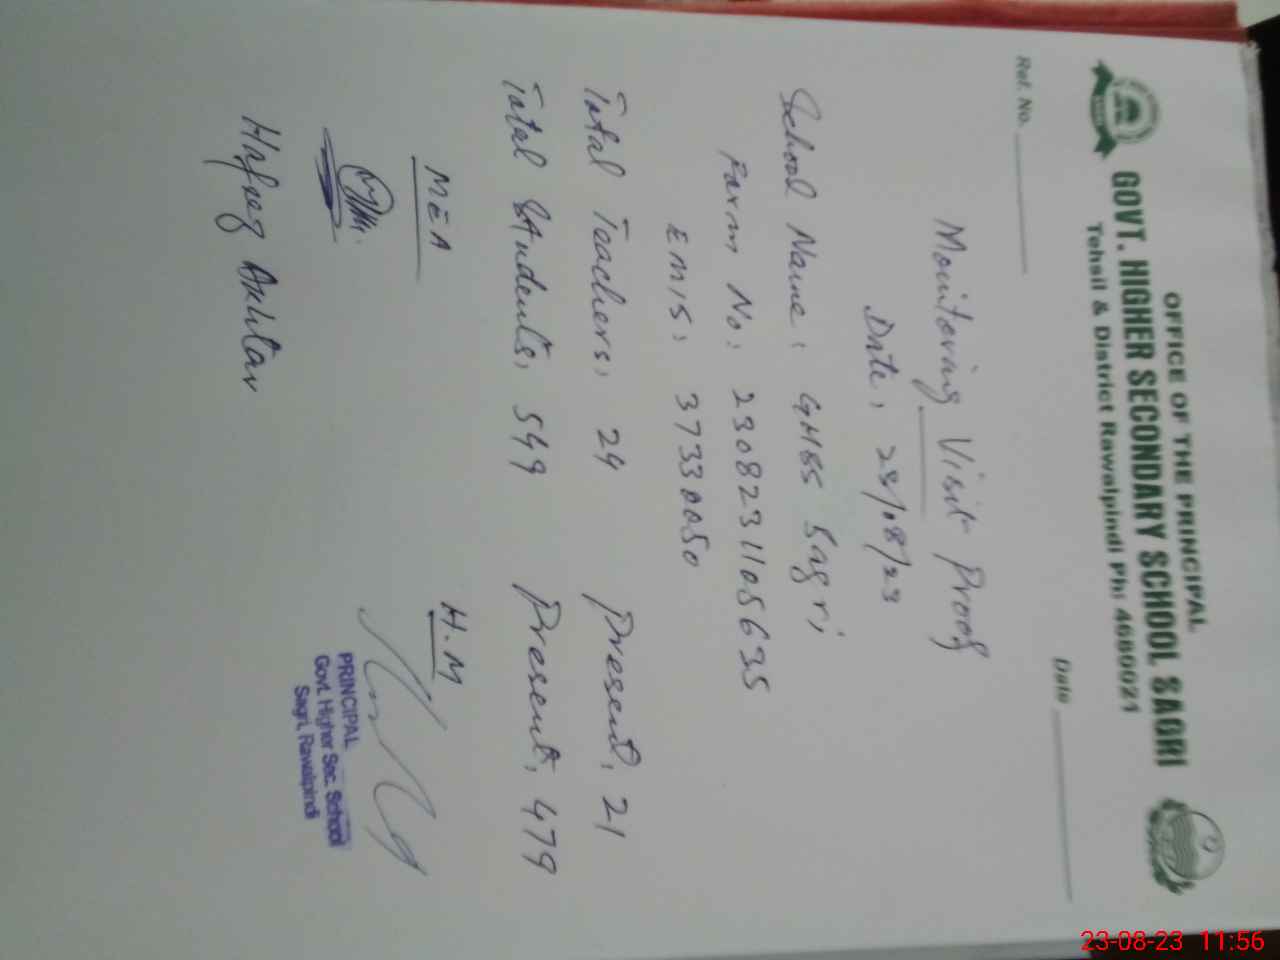 OFFICE OF THE PRINCIPAL
GOVT. HIGHER SECONDARY SCHOOL SAGRI
Tehsil & District Rawalpindi Ph: 4680021
Ref. No.
Date
Monitoring Visit Proof
Date: 23/08/23
School Name: GHSS Sagri
Farm No: 230823110S635
EMIS: 37330050
Total Teachers: 24 Present: 21
Total Students: 549 Present: 479
MEA H.M
Akhtar
PRINCIPAL
Govt. Higher Sec. School
Sagri, Rawalpindi
23-08-23 11:56